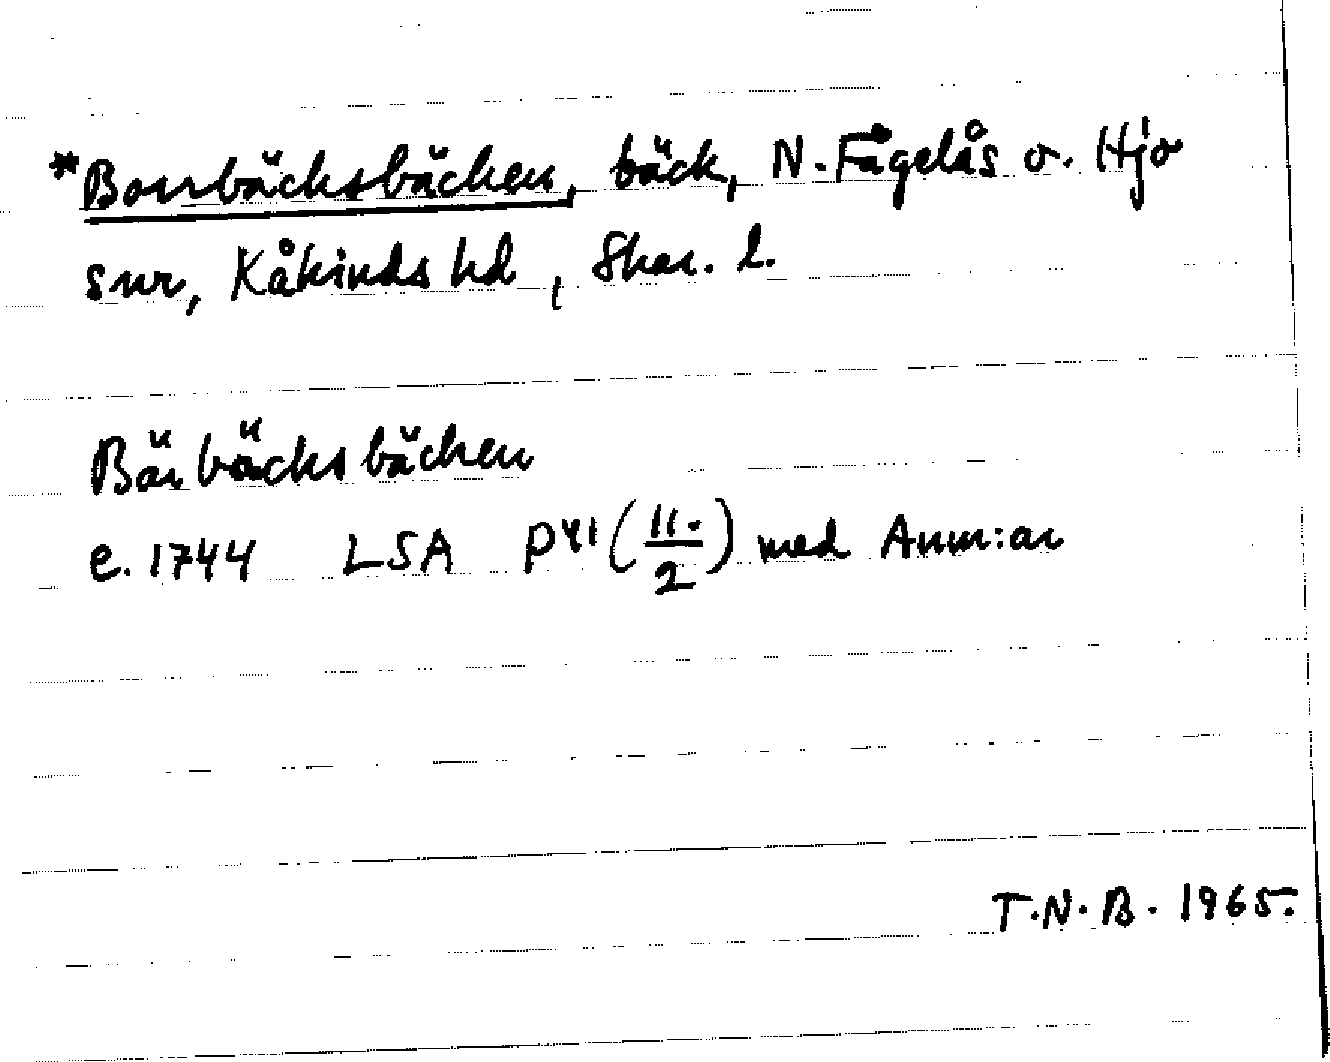 *Borrbäcksbäcken, bäck, N. Fågelås o. Hjo
snr, Kåkinds hd, Skar. l.
Bärbäcksbäcken
e. 1744 LSA P41 (11./2) med Anm:ar
T.N.B. 1965.